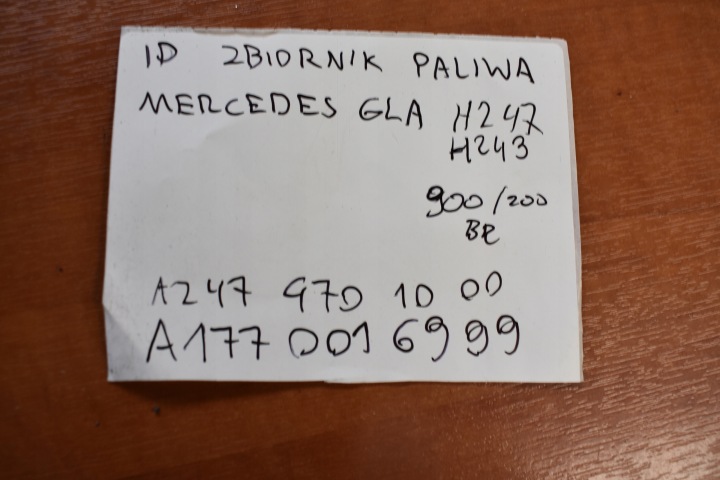 ID ZBIORNIK PALIWA
MERCEDES GLA H247
H243
900/200
BR
A247 470 10 00
A177 001 6999